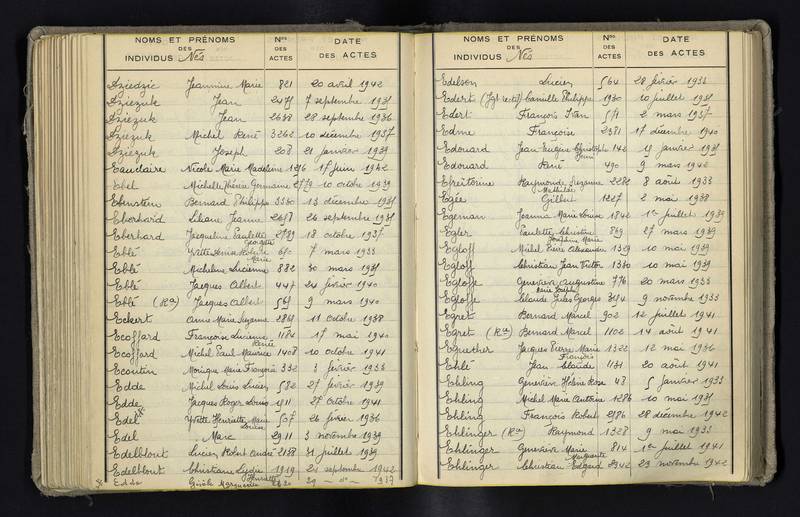 NOMS ET PRÉNOMS
DES
INDIVIDUS Nés
Nos
DES
ACTES
DATE
DES ACTES
Dziedzic Jeannine Marie 821 20 avril 1942
Dziezuk Jean 2471 7 septembre 1935
Dziezuk Jean 2638 28 septembre 1936
Dziezuk Michel René 3262 10 décembre 1937
Dziezuk Joseph 208 21 janvier 1939
Eauclaire Nicole Marie Madeleine 1296 17 juin 1942
Ebel Michelle Thérèse Germaine 2779 10 octobre 1939
Ebenstein Bernard Philippe 3330 13 décembre 1935
Eberhard Liliane Jeanne 2657 26 septembre 1935
Eberhard Jacqueline Paulette 2789 18 octobre 1937
Georgette
Eblé Yvette Denise 670 7 mars 1933
Marie
Eblé Micheline Lucienne 882 30 mars 1935
Eblé Jacques Albert 447 24 février 1940
Eblé (Ron) Jacques Albert 569 9 mars 1940
Eckert Anne Marie Suzanne 2861 11 octobre 1938
Ecoffard Françoise Lucienne 1184 17 mai 1940
Renée
Ecoffard Michel Paul Maurice 1408 10 octobre 1941
Econtin Monique Marie François 332 3 février 1933
Edde Michel Louis Lucien 582 27 février 1939
Edde Jacques Roger Louis 1511 27 octobre 1941
Edel Yvette Henriette Marie 507 26 février 1936
Louise
Edel Marc 2911 3 novembre 1939
Edelblout Lucien Robert André 2138 31 juillet 1939
Edelblout Christiane Lydie 1919 21 septembre 1942
Henriette
Edde Gisèle Marguerite 2620 29 — d° — 1937
NOMS ET PRÉNOMS
DES
INDIVIDUS Nés
Nos
DES
ACTES
DATE
DES ACTES
Edelson Lucien 564 28 février 1933
Edert (Jgt rectif) Camille Philippe 1930 10 juillet 1935
Edert François Ivan 571 2 mars 1937
Edme Françoise 2381 17 décembre 1940
Edouard Jean Eugène Christophe 142 15 janvier 1935
Edouard René 490 9 mars 1942
Raymonde Suzanne 2282 8 août 1933
Mathilde
Egée Gilbert 1227 2 mai 1938
Egeman Jeanne Marie Louise 1846 1er juillet 1939
Egler Paulette Christine 869 27 mars 1939
Joséphine Marie
Egloff Michel Pierre Alexandre 1329 10 mai 1939
Egloff Christian Jean Victor 1330 10 mai 1939
Egloffe Geneviève Augustine 776 20 mars 1933
Marie Joseph
Egloffe Claude Jules Georges 3014 9 novembre 1933
Egret Bernard Marcel 902 12 juillet 1941
Egret (Ron) Bernard Marcel 1102 14 août 1941
Jacques Pierre Marie 1322 12 mai 1936
François
Ehlé Jean Claude 1131 20 août 1941
Ehling Geneviève Hélène Rose 48 5 janvier 1933
Ehling Michel Marie Antoine 1286 10 mai 1935
Ehling François Robert 2586 28 décembre 1942
Ehlinger (Ron) Raymond 1328 9 mai 1933
Ehlinger Geneviève Marie 814 1er juillet 1941
Marguerite
Ehlinger Christian Edgard 2342 23 novembre 1942